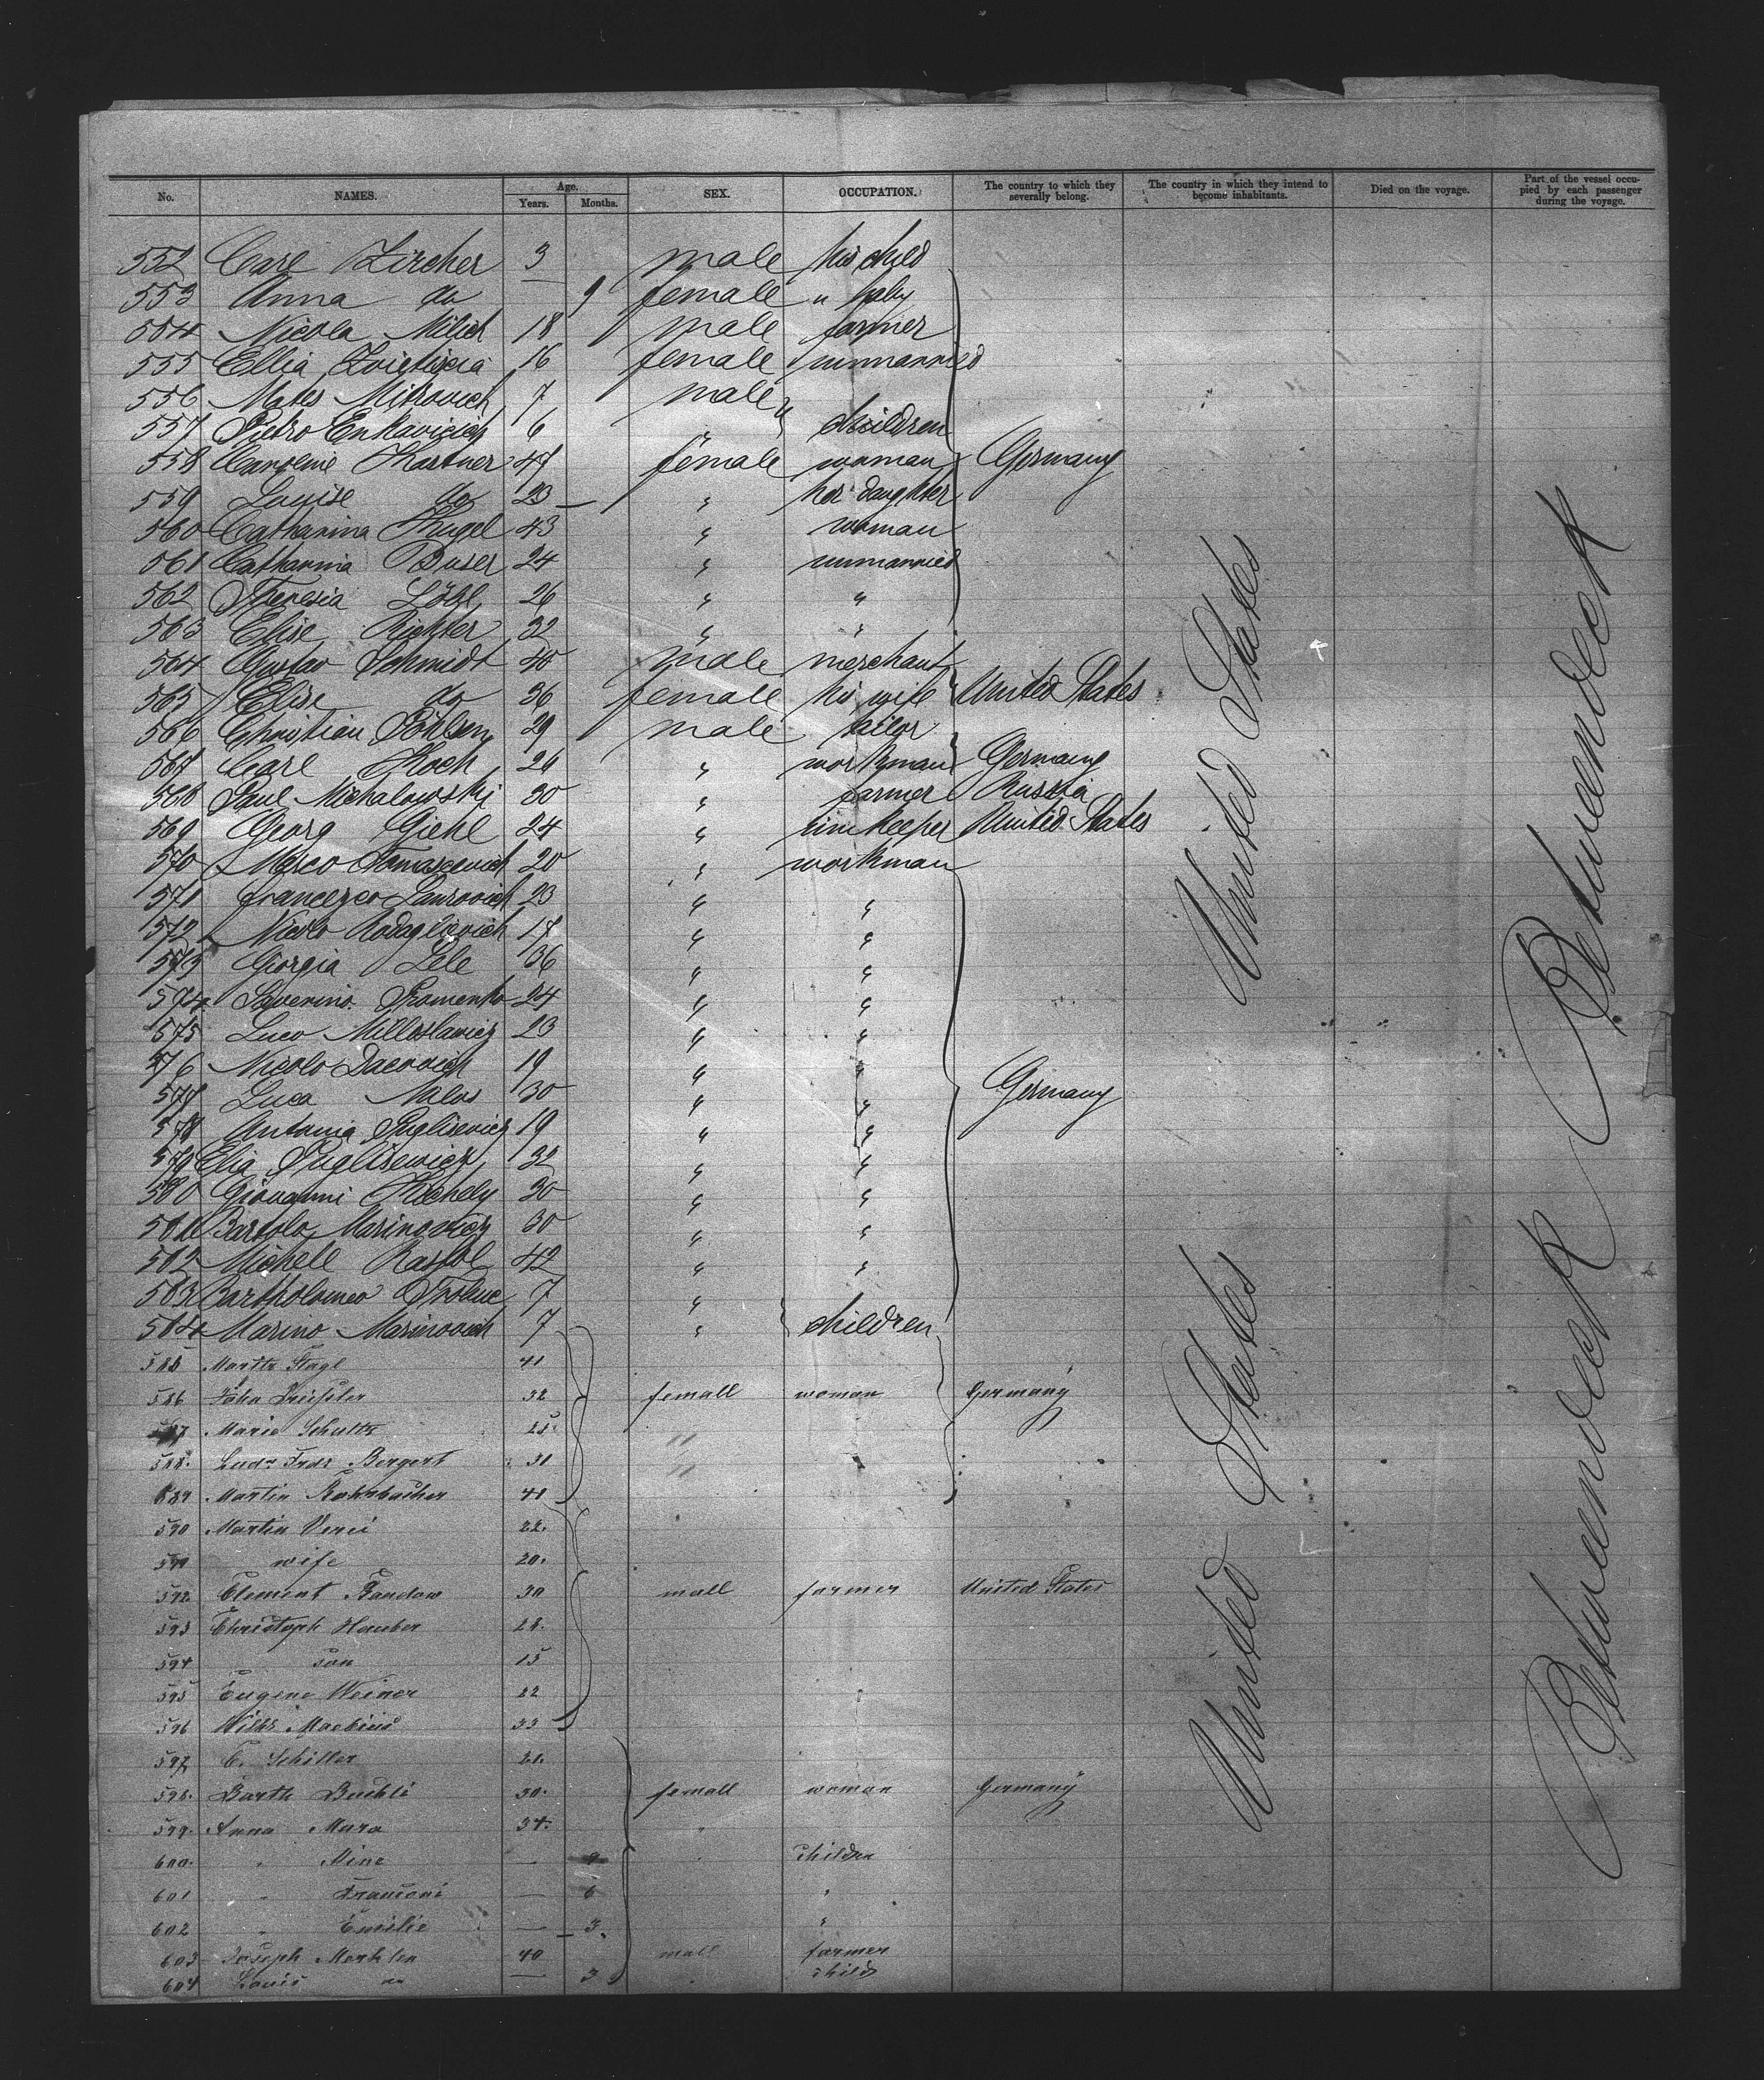 No. NAMES. Age. Years. Months. SEX. OCCUPATION. The country to which they severally belong. The country in which they intend to become inhabitants. Died on the voyage. Part of the vessel occupied by each passenger during the voyage.
552 Carl Zircher 3 male his child
553 Anna do — 9 female " baby
554 Nicola Milich 18 male farmer
555 Ellia 16 female unmarried
556 Mates Mitrovich 7 male "
557 Pietro 6 " children
558 Caroline Kastner 47 female woman Germany
559 Louise do 23 " her daughter
560 Catharina Kugel 43 " woman
561 Catharina Buser 24 " unmarried
562 Theresia Lösl 26 " "
563 Elise Richter 32 " "
564 Gustav Schmidt 40 male merchant
565 Elise do 36 female his wife United States
566 Christian 29 male tailor
567 Carl Koch 26 " workman Germany
568 Paul Michalowski 30 " farmer Russia
569 Georg Giehl 24 " timekeeper United States
570 Marco Tomascevich 20 " workman
571 Francezco Laurovich 23 " "
572 Nicolo 17 " "
573 Giorgia Lele 36 " "
574 Saverino Pramenko 24 " "
575 Luco Milloslavicz 23 " "
576 Nicolo Dacovich 19 " "
577 Luca Nalas 30 " " Germany
578 Antonia Puglisevicz 19 " "
579 Elia Puglisewicz 32 " "
580 Giovanni 30 " "
581 Bartolo Marinovicz 30 " "
582 Michell 42 " "
583 Bartholomeo 7 "
584 Marino Marinovich 7 " children
585 Martha Stagl 41
586 32 femall woman Germany
587 Marie Schultz 25 "
588. Ludw Fridr Bergert 31 "
589 Martin Rohrbacher 41
590 Martin 22.
591 wife 20.
592 Clement Bandow 30 mall farmer United States
593 Christoph Hauber 28.
594 son 15
595 Eugene Weiner 22
596 Wilh. Moebius 33
597 C. Schiller 21.
598. Barth Buehli 30. femall woman Germany
599. Anna Mura 34. "
600. " Mine — 9 " children
601 " — 6 "
602 " Emilie — 3. "
603 Joseph Merklen 40 mall farmer
604 Louis do — 3 " child
United States
United States
Betweendeck
Betweendeck